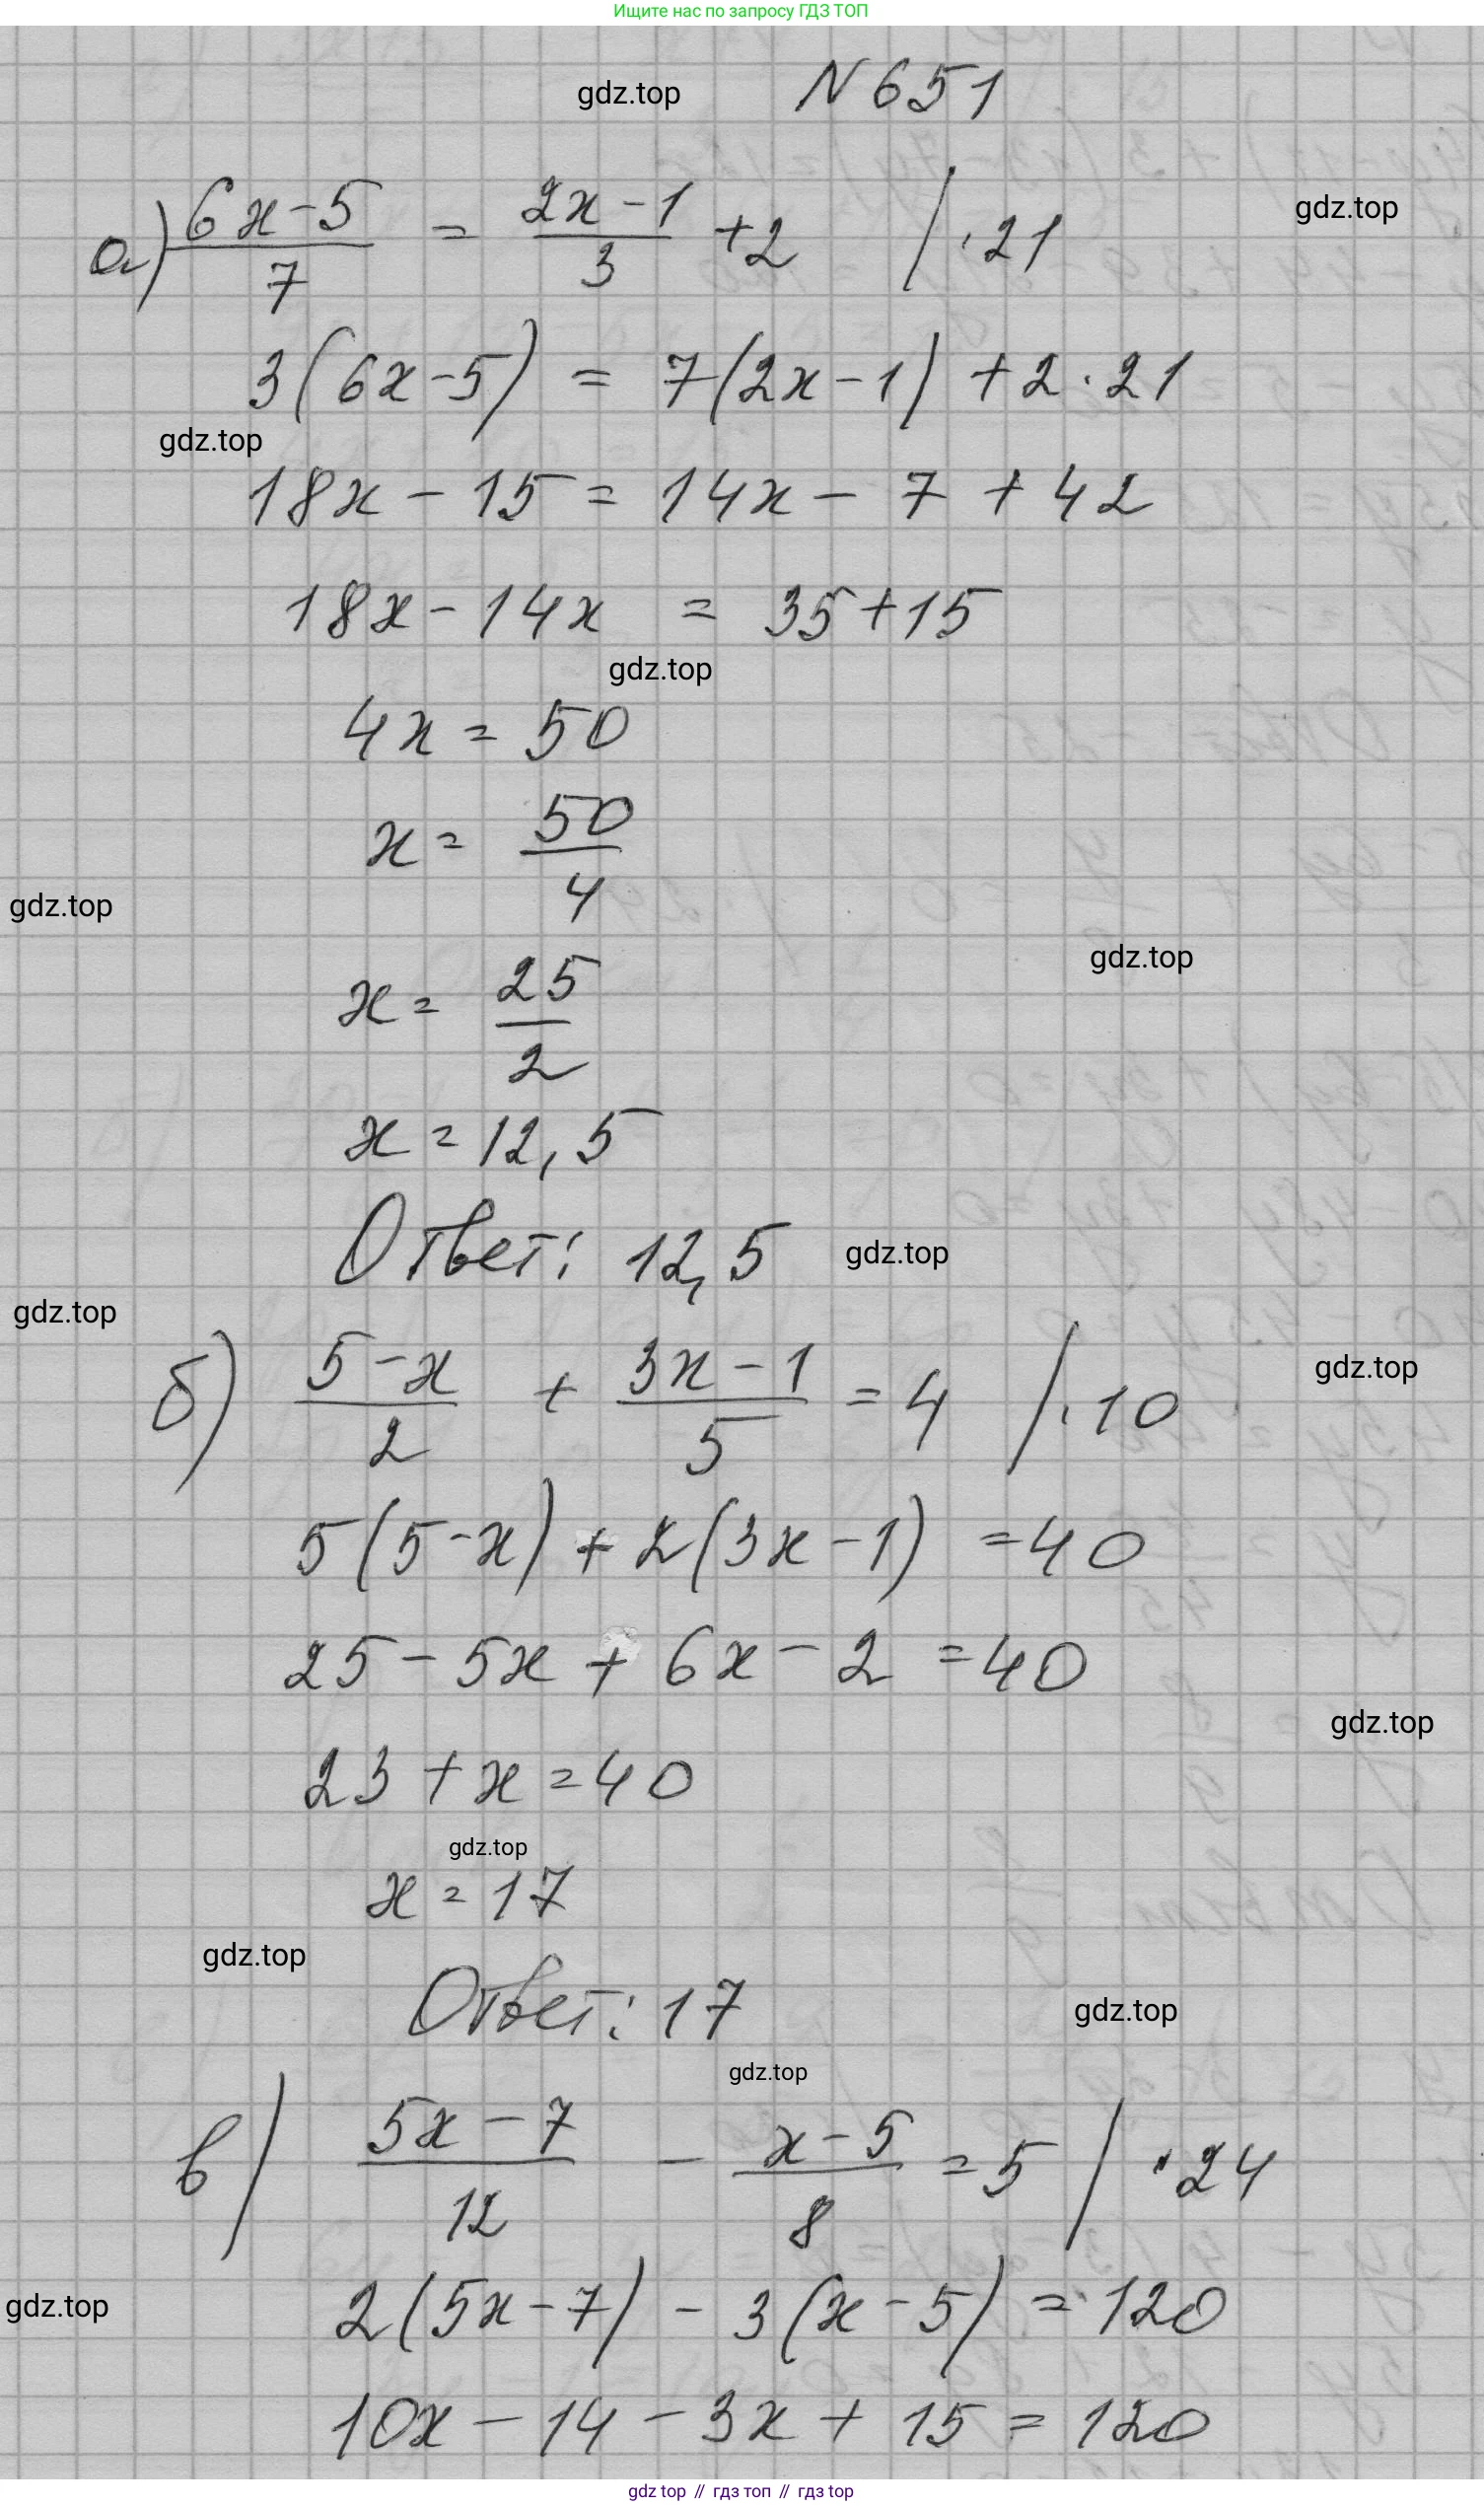 Ищите нас по запросу ГДЗ ТОП
gdz.top N 651
а) (6x-5)/7 = (2x-1)/3 +2 / ·21 gdz.top
3(6x-5) = 7(2x-1) + 2·21
gdz.top
18x - 15 = 14x - 7 + 42
18x - 14x = 35 + 15
gdz.top
4x = 50
x = 50/4
gdz.top
gdz.top
x = 25/2
x = 12,5
Ответ: 12,5 gdz.top
gdz.top
б) (5-x)/2 + (3x-1)/5 = 4 / ·10 gdz.top
5(5-x) + 2(3x-1) = 40
25 - 5x + 6x - 2 = 40
gdz.top
23 + x = 40
gdz.top
x = 17
gdz.top
Ответ: 17 gdz.top
gdz.top
в) (5x-7)/12 - (x-5)/8 = 5 / ·24
gdz.top 2(5x-7) - 3(x-5) = 120
10x - 14 - 3x + 15 = 120
gdz top // гдз топ // гдз top